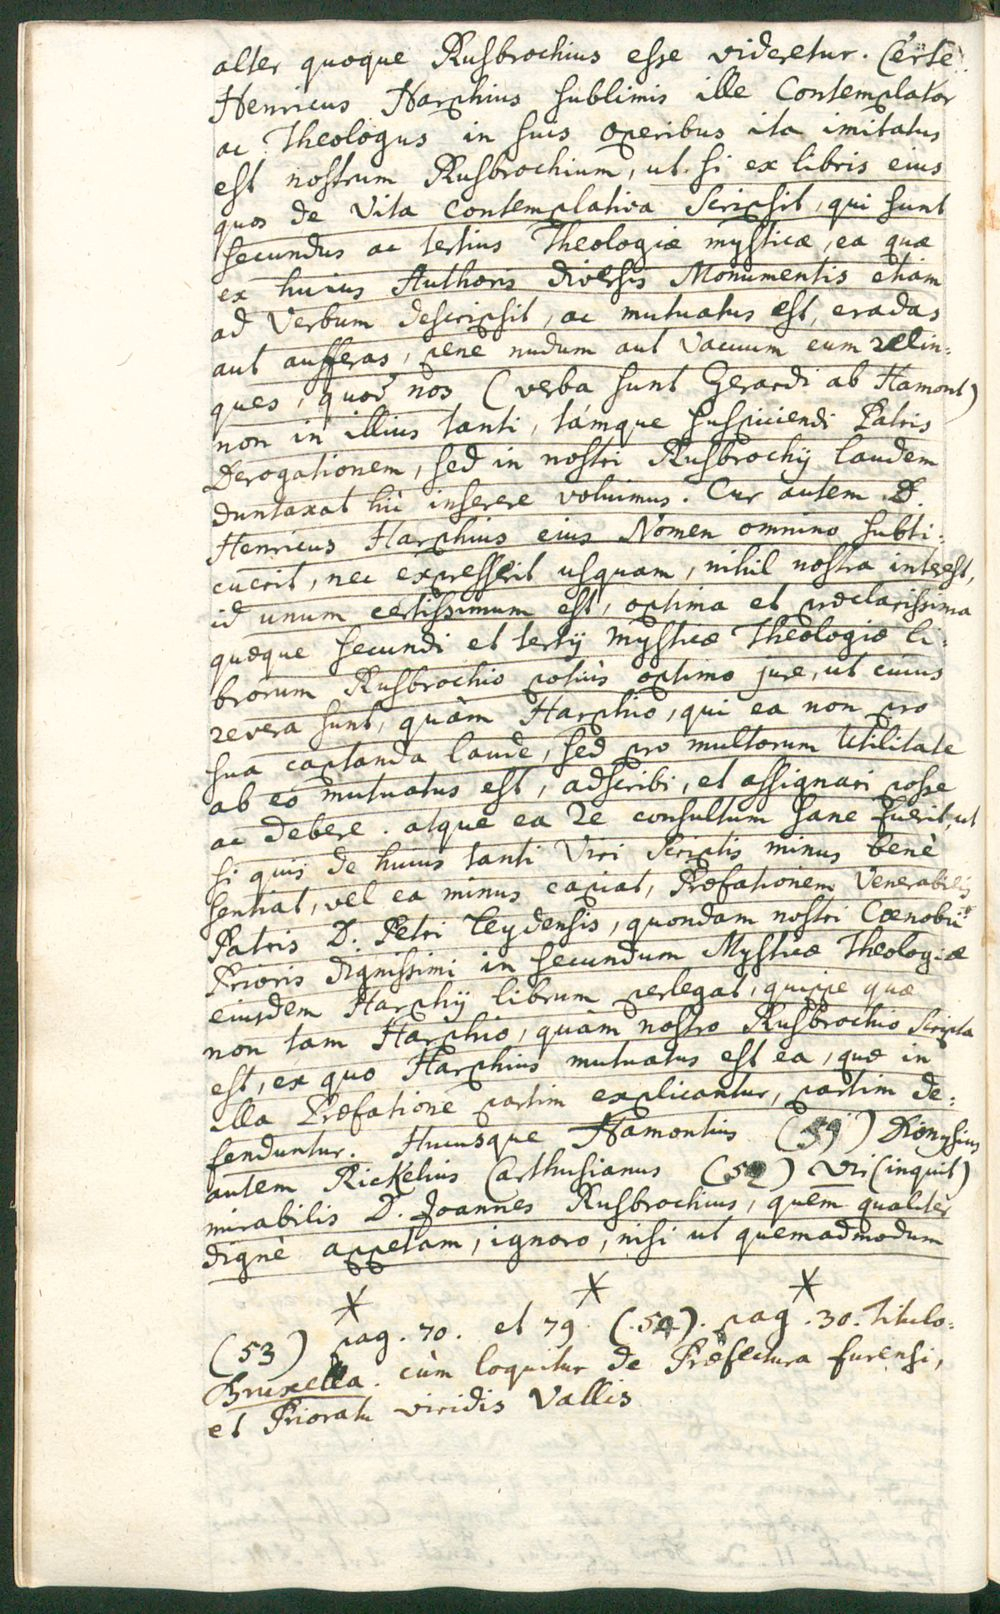 alter quoque Rusbrochius esse videretur. Certè
Henricus Harphius sublimis ille Contemplator
ac Theologus in suis operibus ita imitatus
est nostrum Rusbrochium, ut si ex libris eius
quos de Vita Contemplativa Scripsit, qui sunt
secundus ac tertius Theologiæ mysticæ, ea quæ
ex huius Authoris diversis Monumentis etiam
ad Verbum descripsit, ac mutuatus est, eradas
aut aufferas, pene nudum aut Vacuum eum relin=
ques, quod nos (verba sunt Gerardi ab Hamont)
non in illius tanti, támque suspiciendi Patris
Derogationem, sed in nostri Rusbrochij laudem
duntaxat hìc inserere voluimus. Cur autem D.
Henricus Harphius eius Nomen omnino subti=
cuerit, nec expresserit usquam, nihil nostra interest,
id unum certissimum est, optima et præclarissima
quæque secundi et tertij mysticæ Theologiæ li=
brorum Rusbrochio potiùs optimo jure, ut cuius
revera sunt, quàm Harphio, qui ea non pro
sua captanda laude, sed pro multorum Utilitate
ab eo mutuatus est, adscribi, et assignari posse
ac debere. atque ea re consultum sane fuerit, ut
si quis de huius tanti Viri Scriptis minus benè
sentiat, vel ea minus capiat, Præfationem Venerabilis
Patris D. Petri Leydensis, quondam nostri Cœnobii
Prioris dignissimi in secundum Mysticæ Theologiæ
eiusdem Harphij librum perlegat, quippe quæ
non tam Harphio, quàm nostro Rusbrochio Scripta
est, ex quo Harphius mutuatus est ea, quæ in
illa Præfatione partim explicantur, partim de=
fenduntur. Hucusque Hamontius (53) Dionysius
autem Rickelius Carthusianus (54) Vir (inquit)
mirabilis D. Joannes Rusbrochius, quem qualiter
dignè appelam, ignoro, nisi ut quemadmodum
(53) pag. 70. et 79. (54). pag. 30. Titulo.
Bruxella. cùm loquitur de Præfectura furensi,
et Prioratu viridis Vallis